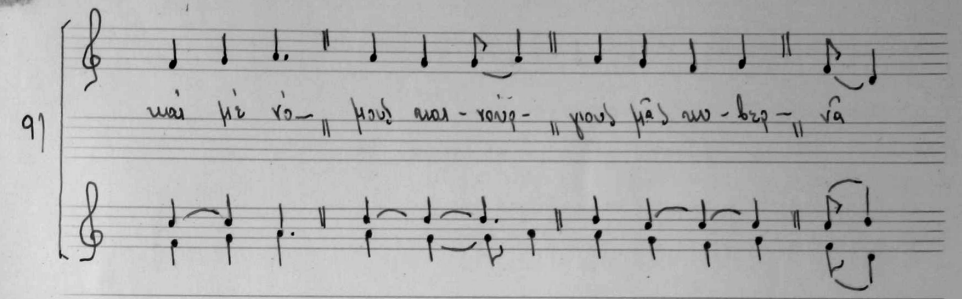 καὶ μὲ νό- μους και- νούρ- γιους μᾶς κυ- βερ- νᾶ
9)